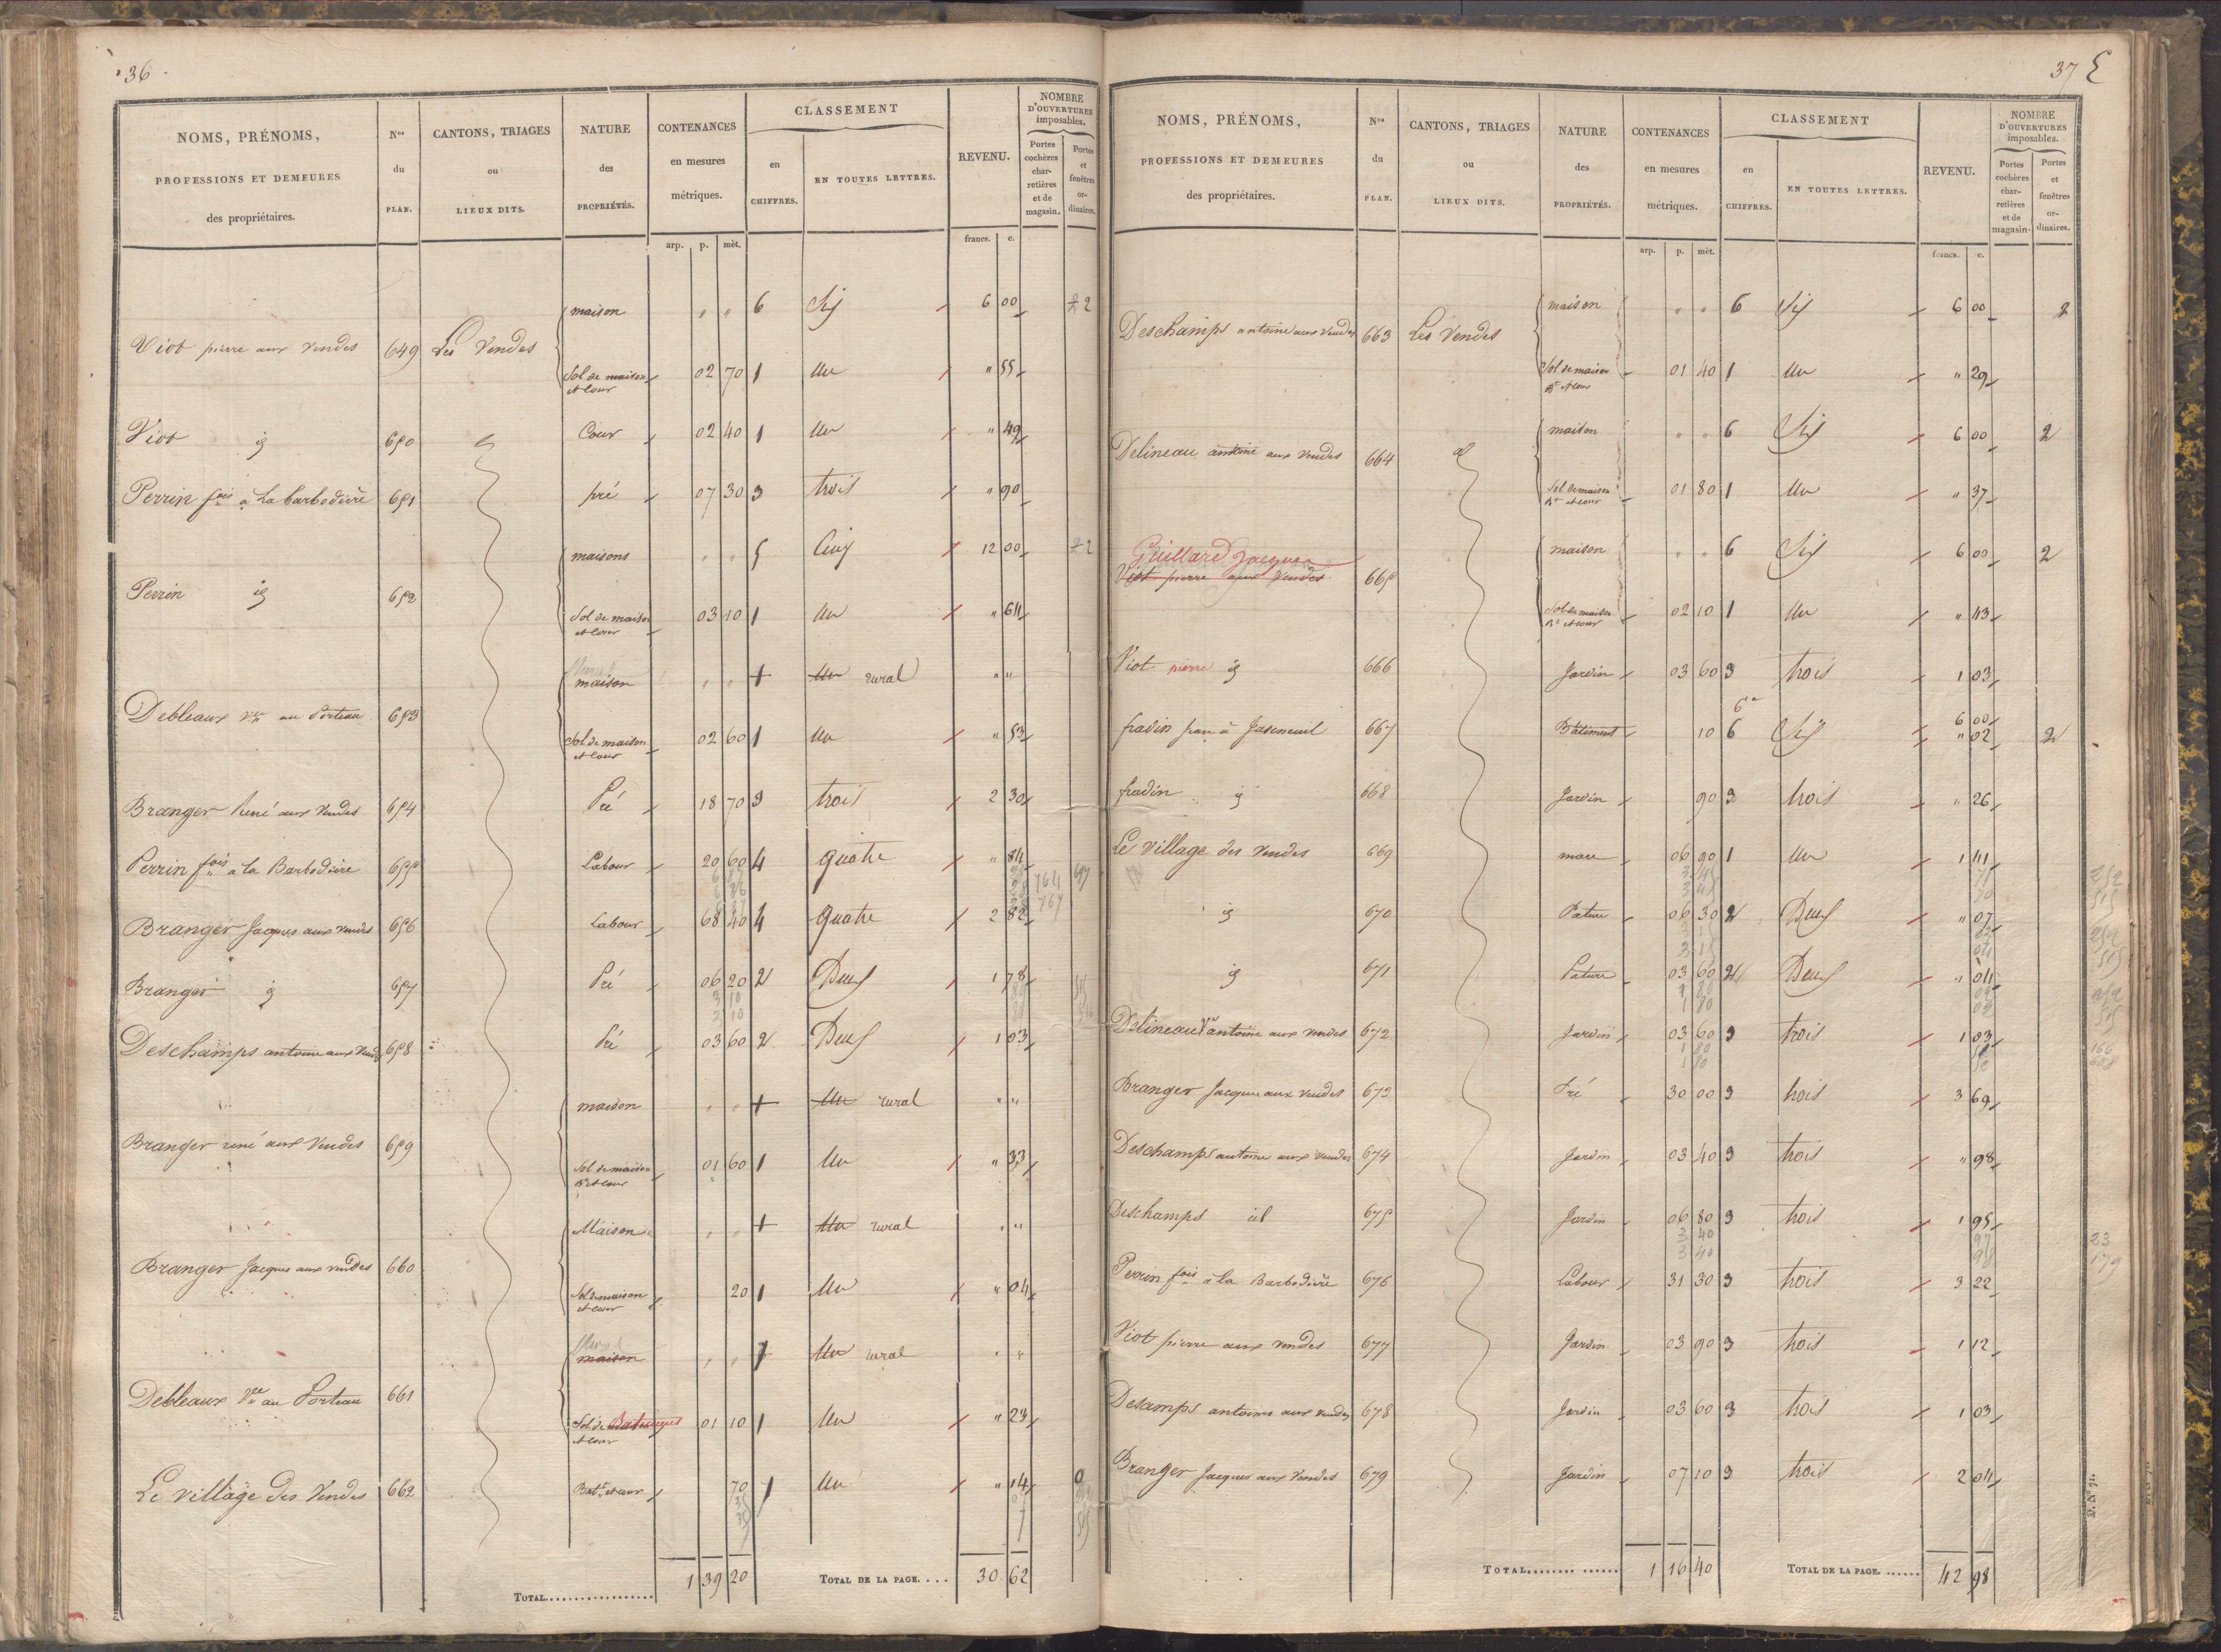 36
NOMS, PRÉNOMS, PROFESSIONS ET DEMEURES des propriétaires.
Nos du PLAN.
CANTONS, TRIAGES ou LIEUX DITS.
NATURE des PROPRIÉTÉS.
CONTENANCES en mesures métriques.
CLASSEMENT
en CHIFFRES.
EN TOUTES LETTRES.
REVENU.
NOMBRE D'OUVERTURES imposables.
Portes cochères charretières et de magasin.
Portes et fenêtres ordinaires.
arp. p. mèt. francs. c.
maison " " 6 Six 6 00 2
Viot pierre aux Vendes 649 Les Vendes
Sol de maison et Cour 02 70 1 Un " 55
Viot id 650 id Cour 02 40 1 Un " 49
Perrin fois à la barbodière 651 pré 07 30 3 trois " 90
maisons " " 5 Cinq 12 00 2
Perrin id 652
Sol de maison et Cour 03 10 1 Un " 64
maison " " 1 Un rural " "
Debleaux Vve au Porteau 653
Sol de maison et Cour 02 60 1 Un " 53
Branger René aux Vendes 654 Pré 18 70 3 trois 2 30
Perrin fois à la Barbodière 655 Labour 20 60 4 quatre " 84
Branger Jacques aux Vendes 656 Labour 68 40 4 quatre 2 82
Branger id 657 Pré 06 20 2 Deux 1 78
3 10
3 10
Deschamps antoine aux Vendes 658 Pré 03 60 2 Deux 1 03
maison " " 1 Un rural " "
Branger rené aux Vendes 659
Sol de maison Bt et Cour 01 60 1 Un " 33
Maison " " 1 Un rural " "
Branger Jacques aux vendes 660
Sol de maison et cour 20 1 Un " 04
maison " " 1 Un rural " "
Debleaux Vve au Porteau 661
Sol de Batiments et Cour 01 10 1 Un " 23
Le village des Vendes 662 Batt et cour 70 1 Un " 14 0
35
35
TOTAL 1 39 20 TOTAL DE LA PAGE.... 30 62
37 E
NOMS, PRÉNOMS, PROFESSIONS ET DEMEURES des propriétaires.
Nos du PLAN.
CANTONS, TRIAGES ou LIEUX DITS.
NATURE des PROPRIÉTÉS.
CONTENANCES en mesures métriques.
CLASSEMENT
en CHIFFRES.
EN TOUTES LETTRES.
REVENU.
NOMBRE D'OUVERTURES imposables.
Portes cochères charretières et de magasin.
Portes et fenêtres ordinaires.
arp. p. mèt. francs. c.
maison " " 6 Six 6 00 2
Deschamps antoine aux Vendes 663 Les Vendes
Sol de maison Bt et Cour 01 40 1 Un " 29
maison " " 6 Six 6 00 2
Delineau antoine aux Vendes 664 id
Sol de maison Bt et cour 01 80 1 Un " 37
Guillard Jacques
maison " " 6 Six 6 00 2
Viot pierre aux Vendes 665
Sol de maison Bt et cour 02 10 1 Un " 43
Viot pierre id 666 Jardin 03 60 3 trois 1 03
6e 6 00
fradin jean à Jaseneuil 667 Bâtiment 10 6 Six " 02 2
fradin id 668 Jardin 90 3 trois " 26
Le village des Vendes 669 mare 06 90 1 Un 1 41
3 45
3 45
id 670 Pature 06 30 2 Deux " 07
3 15
3 15
id 671 Pature 03 60 2 Deux " 04
1 80
1 80
Delineau Vve antoine aux Vendes 672 Jardin 03 60 3 trois 1 03
1 80
1 80
166
Branger Jacques aux Vendes 673 Pré 30 00 3 trois 3 69
Deschamps antoine aux Vendes 674 Jardin 03 40 3 trois " 98
Deschamps id 675 Jardin 06 80 3 trois 1 95
3 40
3 40
23
179
Perrin fois à la Barbodière 676 Labour 31 30 3 trois 3 22
Viot pierre aux Vendes 677 Jardin 03 90 3 trois 1 12
Desamps antoine aux Vendes 678 Jardin 03 60 3 trois 1 03
Branger Jacques aux Vendes 679 Jardin 07 10 3 trois 2 04
TOTAL 1 16 40 TOTAL DE LA PAGE...... 42 98